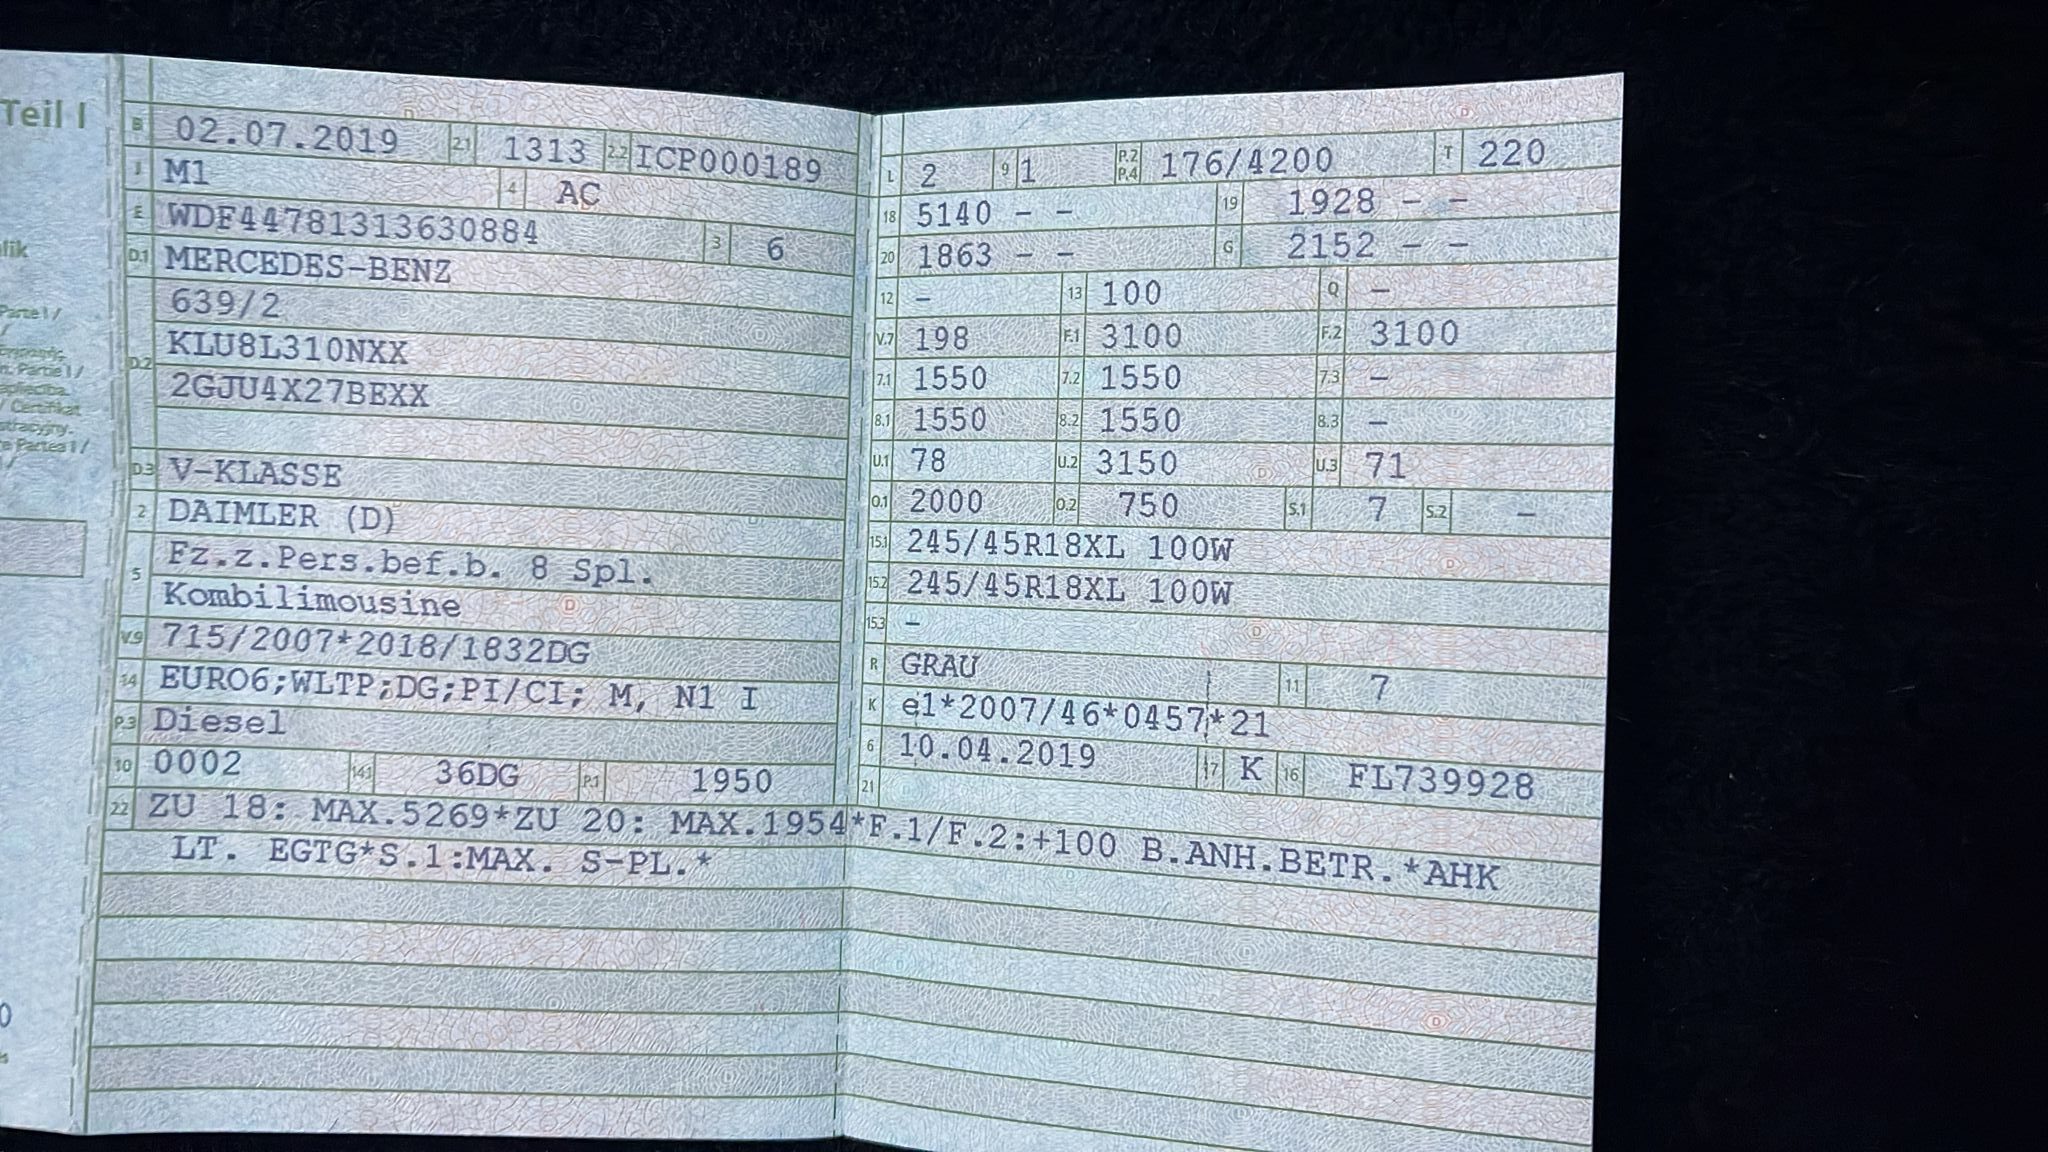 Teil I
B 02.07.2019 2.1 1313 2.2 ICP000189
J M1 4 AC
E WDF44781313630884 3 6
D.1 MERCEDES-BENZ
639/2
D.2 KLU8L310NXX
2GJU4X27BEXX
D.3 V-KLASSE
2 DAIMLER (D)
5 Fz.z.Pers.bef.b. 8 Spl.
Kombilimousine
V.9 715/2007*2018/1832DG
14 EURO6;WLTP;DG;PI/CI; M, N1 I
P.3 Diesel
10 0002 14.1 36DG P.1 1950
L 2 9 1 P.2 P.4 176/4200 T 220
18 5140 - - 19 1928 - -
20 1863 - - G 2152 - -
12 - 13 100 Q -
V.7 198 F.1 3100 F.2 3100
7.1 1550 7.2 1550 7.3 -
8.1 1550 8.2 1550 8.3 -
U.1 78 U.2 3150 U.3 71
O.1 2000 O.2 750 S.1 7 S.2 -
15.1 245/45R18XL 100W
15.2 245/45R18XL 100W
15.3 -
R GRAU 11 7
K e1*2007/46*0457*21
6 10.04.2019 17 K 16 FL739928
21
22 ZU 18: MAX.5269*ZU 20: MAX.1954*F.1/F.2:+100 B.ANH.BETR.*AHK
LT. EGTG*S.1:MAX. S-PL.*